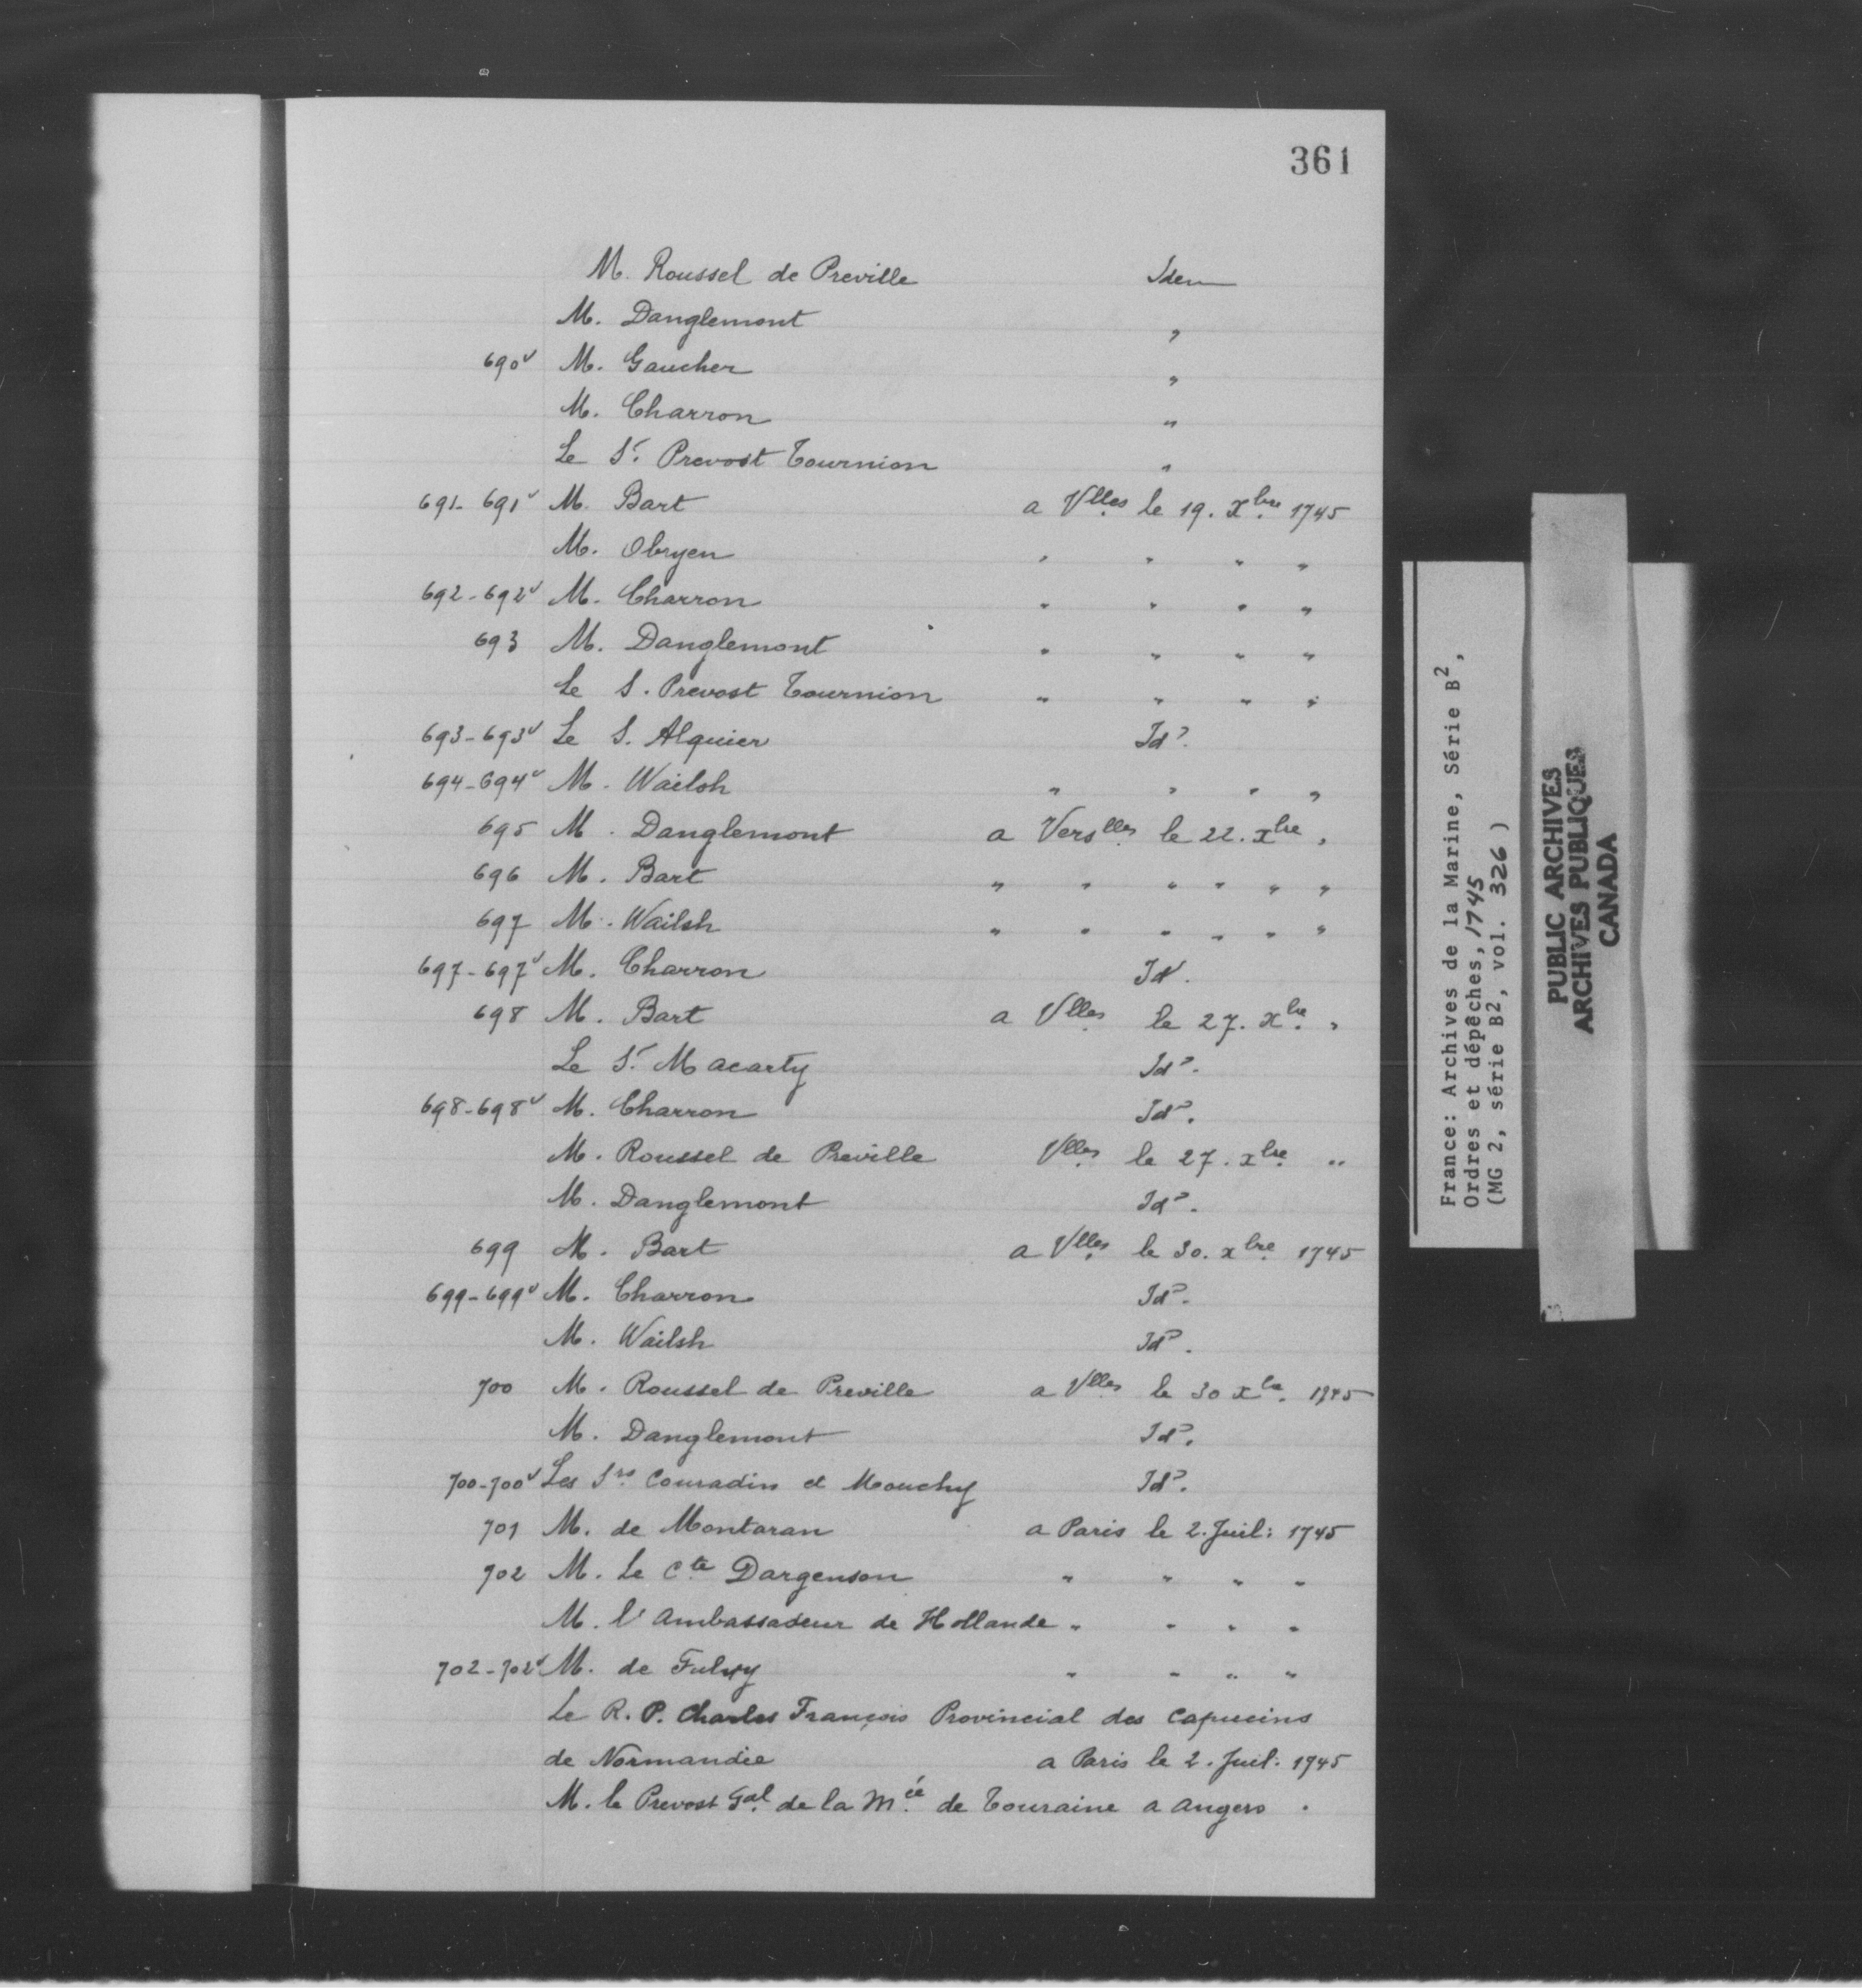 361
M. Roussel de Preville Idem
M. Danglemont "
690v M. Gaucher "
M. Charron "
Le Sr. Prevost Tournion "
691-691v M. Bart a Vlles le 19. Xbre 1745
M. Obryen " " " "
692-692v M. Charron " " " "
693 M. Danglemont " " " "
Le S. Prevost Tournion " " " "
693-693v Le S. Alquier Id?.
694-694v M. Wailsh " " " "
695 M. Danglemont a Verslles le 22. xbre "
696 M. Bart " " " " " "
697 M. Wailsh " " " " " "
697-697v M. Charron Id.
698 M. Bart a Vlles le 27. xbre "
Le Sr. Macarty Id?.
698-698v M. Charron Id?.
M. Roussel de Preville Vlles le 27. xbre "
M. Danglemont Id?.
699 M. Bart a Vlles le 30. xbre 1745
699-699v M. Charron Id?.
M. Wailsh Id?.
700 M. Roussel de Preville a Vlles le 30 xbre. 1745
M. Danglemont Id?.
700-700v Les Srs. Couradin et Mouchy Id?.
701 M. de Montaran a Paris le 2. Juil: 1745
702 M. Le Cte Dargenson " " " "
M. l'Ambassadeur de Hollande " " " "
702-702v M. de Fulvy " " " "
Le R. P. Charles François Provincial des Capucins
de Normandie a Paris le 2. Juil: 1745
M. le Prevost Gal. de la Mée. de Touraine a Angers .
France: Archives de la Marine, Série B2,
Ordres et dépêches, 1745
(MG 2, série B2, vol. 326)
PUBLIC ARCHIVES
ARCHIVES PUBLIQUES
CANADA